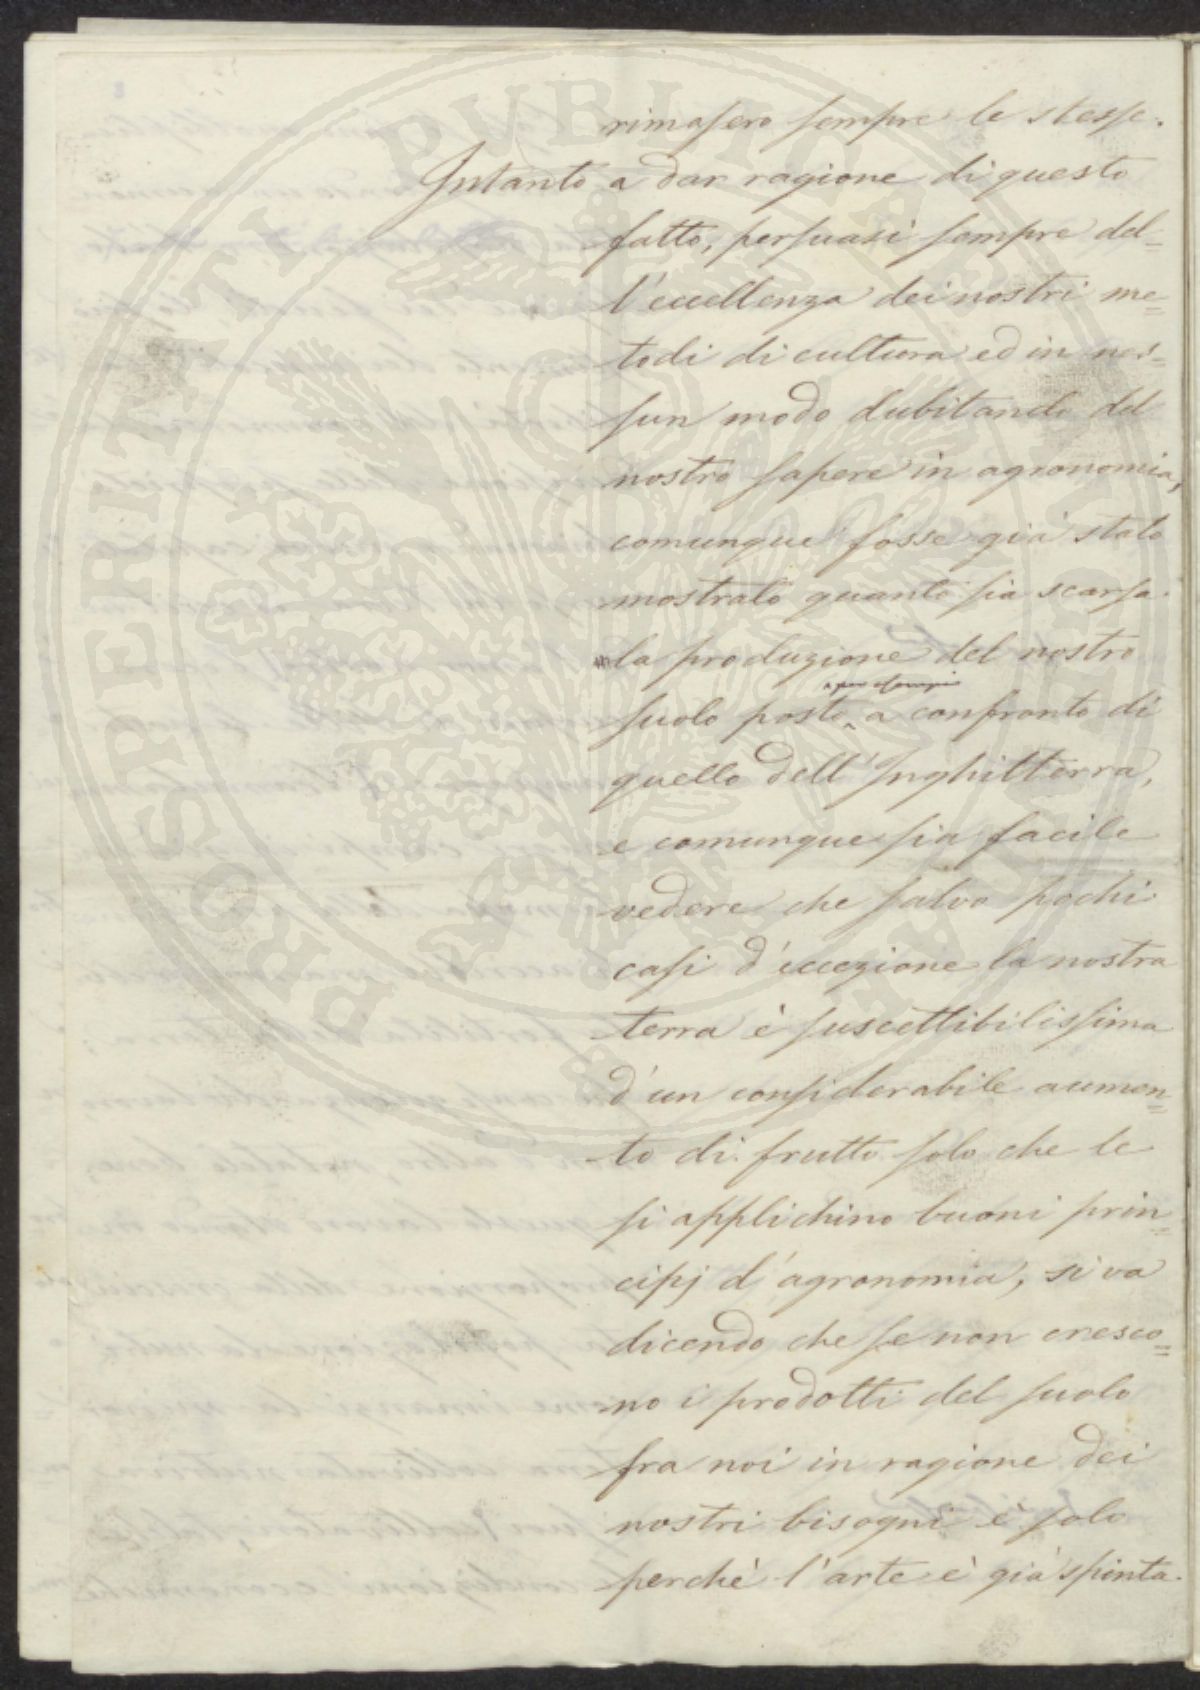 rimasero sempre le stesse.
Intanto a dar ragione di questo
fatto, persuasi sempre del=
l'eccellenza dei nostri me=
todi di cultura ed in nes=
sun modo dubitando del
nostro sapere in agronomia,
comunque fosse già stato
mostrato quanto sia scarsa
la produzione del nostro
suolo posto a confronto di
quello dell'Inghilterra,
e comunque sia facile
vedere che salvo pochi
casi d'eccezione la nostra
terra è suscettibilissima
d'un considerabile aumen=
to di frutto solo che le
si applichino buoni prin=
cipj d'agronomia, si va
dicendo che se non cresco=
no i prodotti del suolo
fra noi in ragione dei
nostri bisogni è solo
perchè l'arte è già spinta
PROSPERITATI PUBLICAE